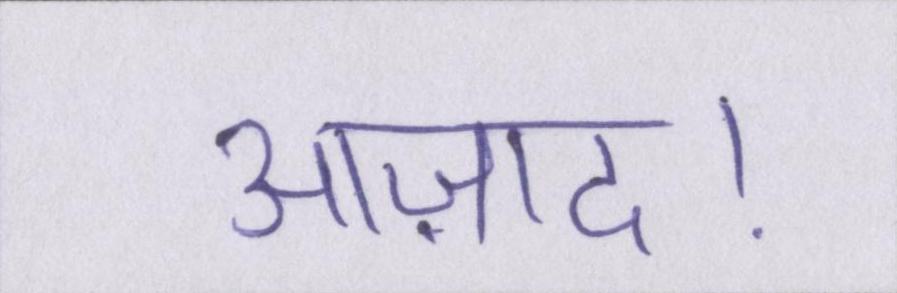 आज़ाद!